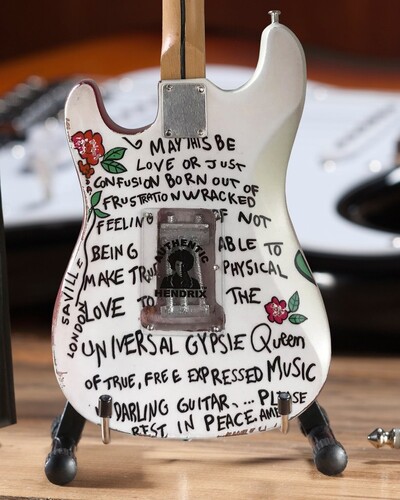 MAY THIS BE
LOVE OR JUST
CONFUSION BORN OUT OF
FRUSTRATION WRACKED
FEELIN OF NOT
BEING ABLE TO
MAKE TRU PHYSICAL
LOVE TO THE
UNIVERSAL GYPSIE Queen
OF TRUE, FREE EXPRESSED MUSIC
DARLING GUITAR.... PLEASE
REST IN PEACE. AMEN
SAVILLE
LONDON
AUTHENTIC
HENDRIX